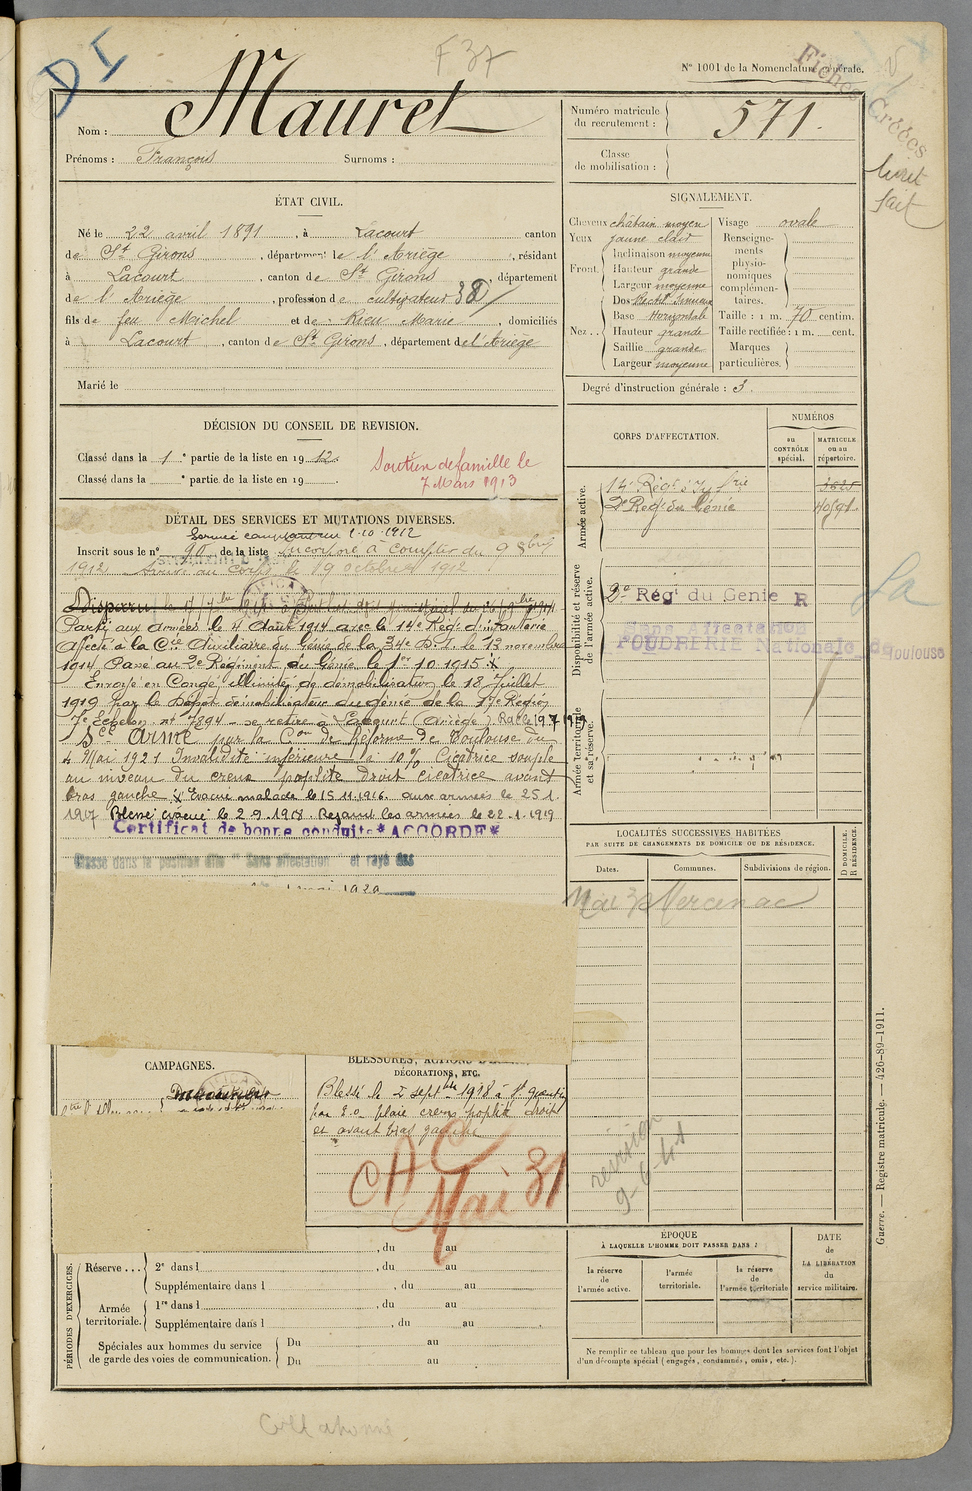 D I
F 37
N° 1001 de la Nomenclature générale.
Fiches Créées
livret
fait
Nom : Mauret
Prénoms : François Surnoms :
Numéro matricule du recrutement : 571.
Classe de mobilisation :
ÉTAT CIVIL.
Né le 22 avril 1891, à Lacourt canton
de St Girons, département de l'Ariège, résidant
à Lacourt, canton de St Girons, département
de l'Ariège, profession de cultivateur 38
fils de feu Michel et de Rieu Marie, domiciliés
à Lacourt, canton de St Girons, département de l'Ariège
Marié le
SIGNALEMENT.
Cheveux châtain moyen Visage ovale
Yeux jaune clair
Front. Inclinaison moyenne
Hauteur grande
Largeur moyenne
Nez .. Dos Rectil. Sinueux
Base Horizontale
Hauteur grande
Saillie grande
Largeur moyenne
Renseignements physionomiques complémentaires.
Taille : 1 m. 70 centim.
Taille rectifiée : 1 m. cent.
Marques particulières.
Degré d'instruction générale : 3
DÉCISION DU CONSEIL DE REVISION.
Classé dans la 1e partie de la liste en 1912
Classé dans la e partie de la liste en 19
Soutien de famille le
7 Mars 1913
CORPS D'AFFECTATION.
NUMÉROS
au CONTRÔLE spécial.
MATRICULE ou au répertoire.
Armée active.
14e Régt d'Inf rie
2e Regt du Génie
Disponibilité et réserve de l'armée active.
2e Rég du Genie R
Sans Affectation
POUDRERIE Nationale de Toulouse
Armée territoriale et sa réserve.
DÉTAIL DES SERVICES ET MUTATIONS DIVERSES.
1-10-1912
Inscrit sous le n° 90 de la liste Incorporé à compter du 9 8bre
1912 Arrivé au corps le 19 octobre 1912
Disparu
Parti aux armées le 4 Août 1914 avec le 14e Régt d'infanterie
Affecté à la Cie Auxiliaire du Génie de la 34e D.I. le 13 novembre
1914 Passé au 2e Régiment du Génie le 1er 10.1915
Envoyé en Congé illimité de démobilisation le 18 Juillet
1919 par le Dépôt démobilisateur du génie de la 17e Région
7e Echelon n° 7894 - se retire à Lacourt (Ariège)
Sce Armé par la Con de Réforme de Toulouse du
4 Mai 1921 Invalidité inférieure à 10% Cicatrice souple
au niveau du creux poplité droit cicatrice avant
bras gauche Evacué malade le 15.11.1916. aux armées le 25.1.
1917 Blessé évacué le 2.9.1918 Rejoint les armées le 22.1.1919
Certificat de bonne conduite ACCORDÉ
Classé dans la position dite "Sans affectation" et rayé des
LOCALITÉS SUCCESSIVES HABITÉES
PAR SUITE DE CHANGEMENTS DE DOMICILE OU DE RÉSIDENCE.
Dates. Communes. Subdivisions de région.
D DOMICILE. R RÉSIDENCE.
Mercenac
CAMPAGNES.
BLESSURES, ACTIONS
DÉCORATIONS, ETC.
Blessé le 2 septbre 1918 à St Quentin
par E.O. plaie creux poplité droit
et avant bras gauche
CAC
Mai 31
revision
9-6-41
PÉRIODES D'EXERCICES.
, du au
Réserve ... 2e dans l , du au
Supplémentaire dans l , du au
Armée territoriale. 1re dans l , du au
Supplémentaire dans l , du au
Spéciales aux hommes du service de garde des voies de communication. Du au
Du au
ÉPOQUE
À LAQUELLE L'HOMME DOIT PASSER DANS :
la réserve de l'armée active.
l'armée territoriale.
la réserve de l'armée territoriale
DATE de LA LIBÉRATION du service militaire.
Ne remplir ce tableau que pour les hommes dont les services font l'objet
d'un décompte spécial (engagés, condamnés, omis, etc.).
Guerre. — Registre matricule. — 426-89-1911.